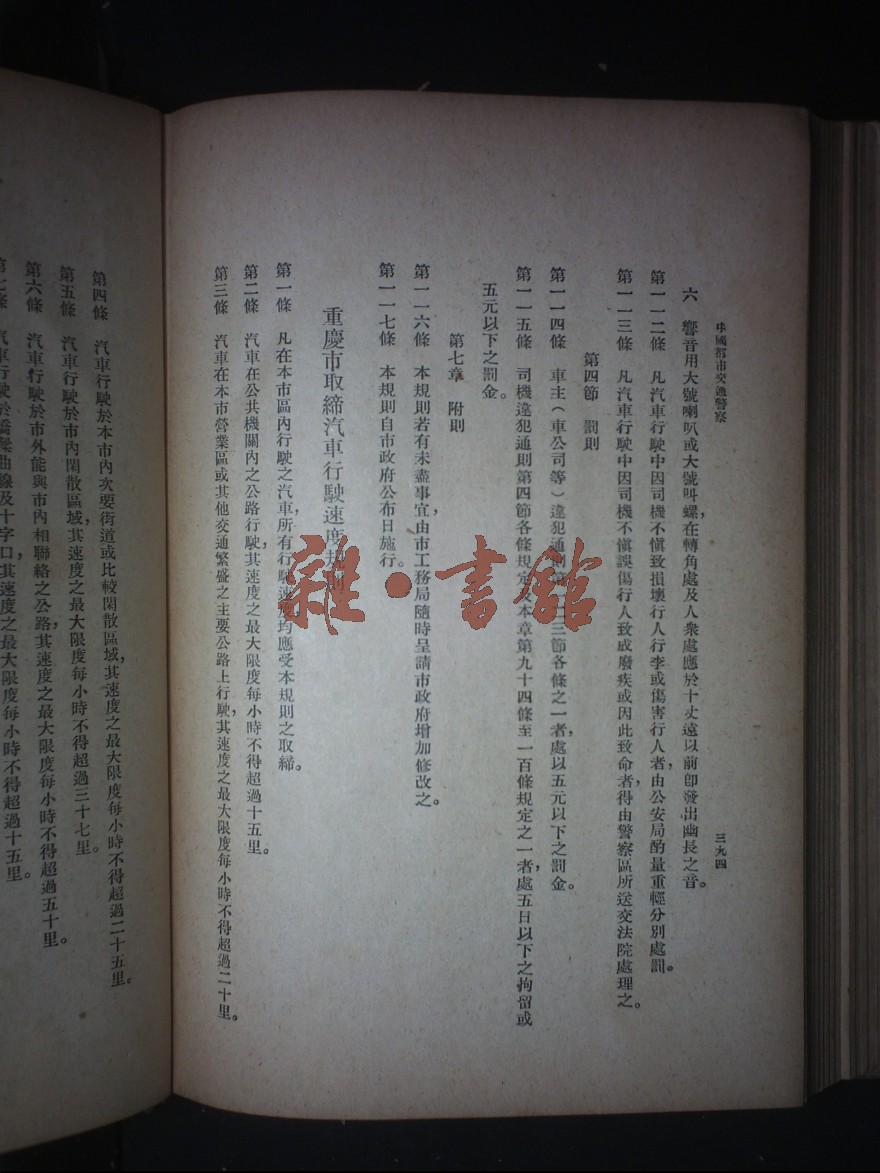 中國都市交通警察
三九四
六 響音用大號喇叭或大號叫螺，在轉角處及人衆處應於十丈遠以前卽發出幽長之音。
第一一二條 凡汽車行駛中因司機不愼致損壞行人行李或傷害行人者，由公安局酌量重輕分別處罰。
第一一三條 凡汽車行駛中因司機不愼誤傷行人致成廢疾或因此致命者，得由警察區所送交法院處理之。
第四節 罰則
第一一四條 車主（車公司等）違犯通則第二三節各條之一者，處以五元以下之罰金。
第一一五條 司機違犯通則第四節各條規定及本章第九十四條至一百條規定之一者，處五日以下之拘留或
五元以下之罰金。
第七章 附則
第一一六條 本規則若有未盡事宜，由市工務局隨時呈請市政府增加修改之。
第一一七條 本規則自市政府公布日施行。
重慶市取締汽車行駛速度規則
第一條 凡在本市區內行駛之汽車，所有行駛速度均應受本規則之取締。
第二條 汽車在公共機關內之公路行駛，其速度之最大限度每小時不得超過十五里。
第三條 汽車在本市營業區或其他交通繁盛之主要公路上行駛，其速度之最大限度每小時不得超過二十里。
第四條 汽車行駛於本市內次要街道或比較閑散區域，其速度之最大限度每小時不得超過二十五里。
第五條 汽車行駛於市內閑散區域，其速度之最大限度每小時不得超過三十七里。
第六條 汽車行駛於市外能與市內相聯絡之公路，其速度之最大限度每小時不得超過五十里。
第七條 汽車行駛於橋樑曲線及十字口，其速度之最大限度每小時不得超過十五里。
雜·書館